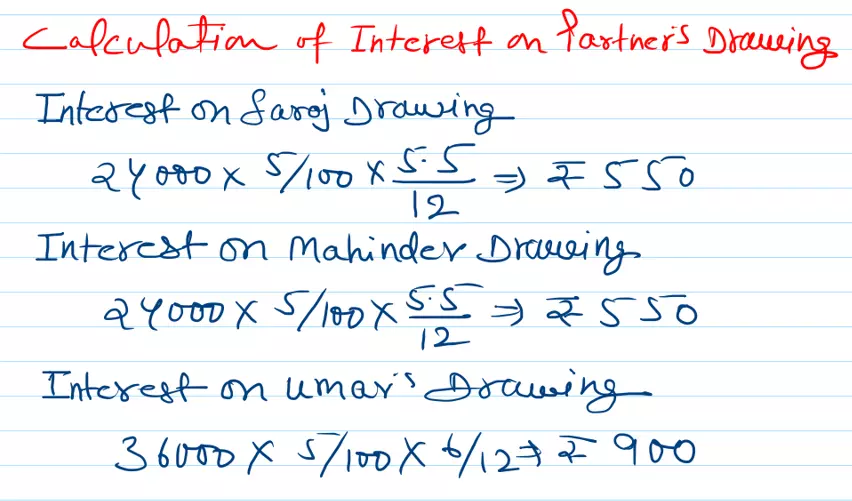 Calculation of Interest on Partner's Drawing
Interest on Saroj Drawing
24000 x 5/100 x 5.5/12 ⇒ ₹ 550
Interest on Mahinder Drawing
24000 x 5/100 x 5.5/12 ⇒ ₹ 550
Interest on Umar's Drawing
36000 x 5/100 x 6/12 ⇒ ₹ 900